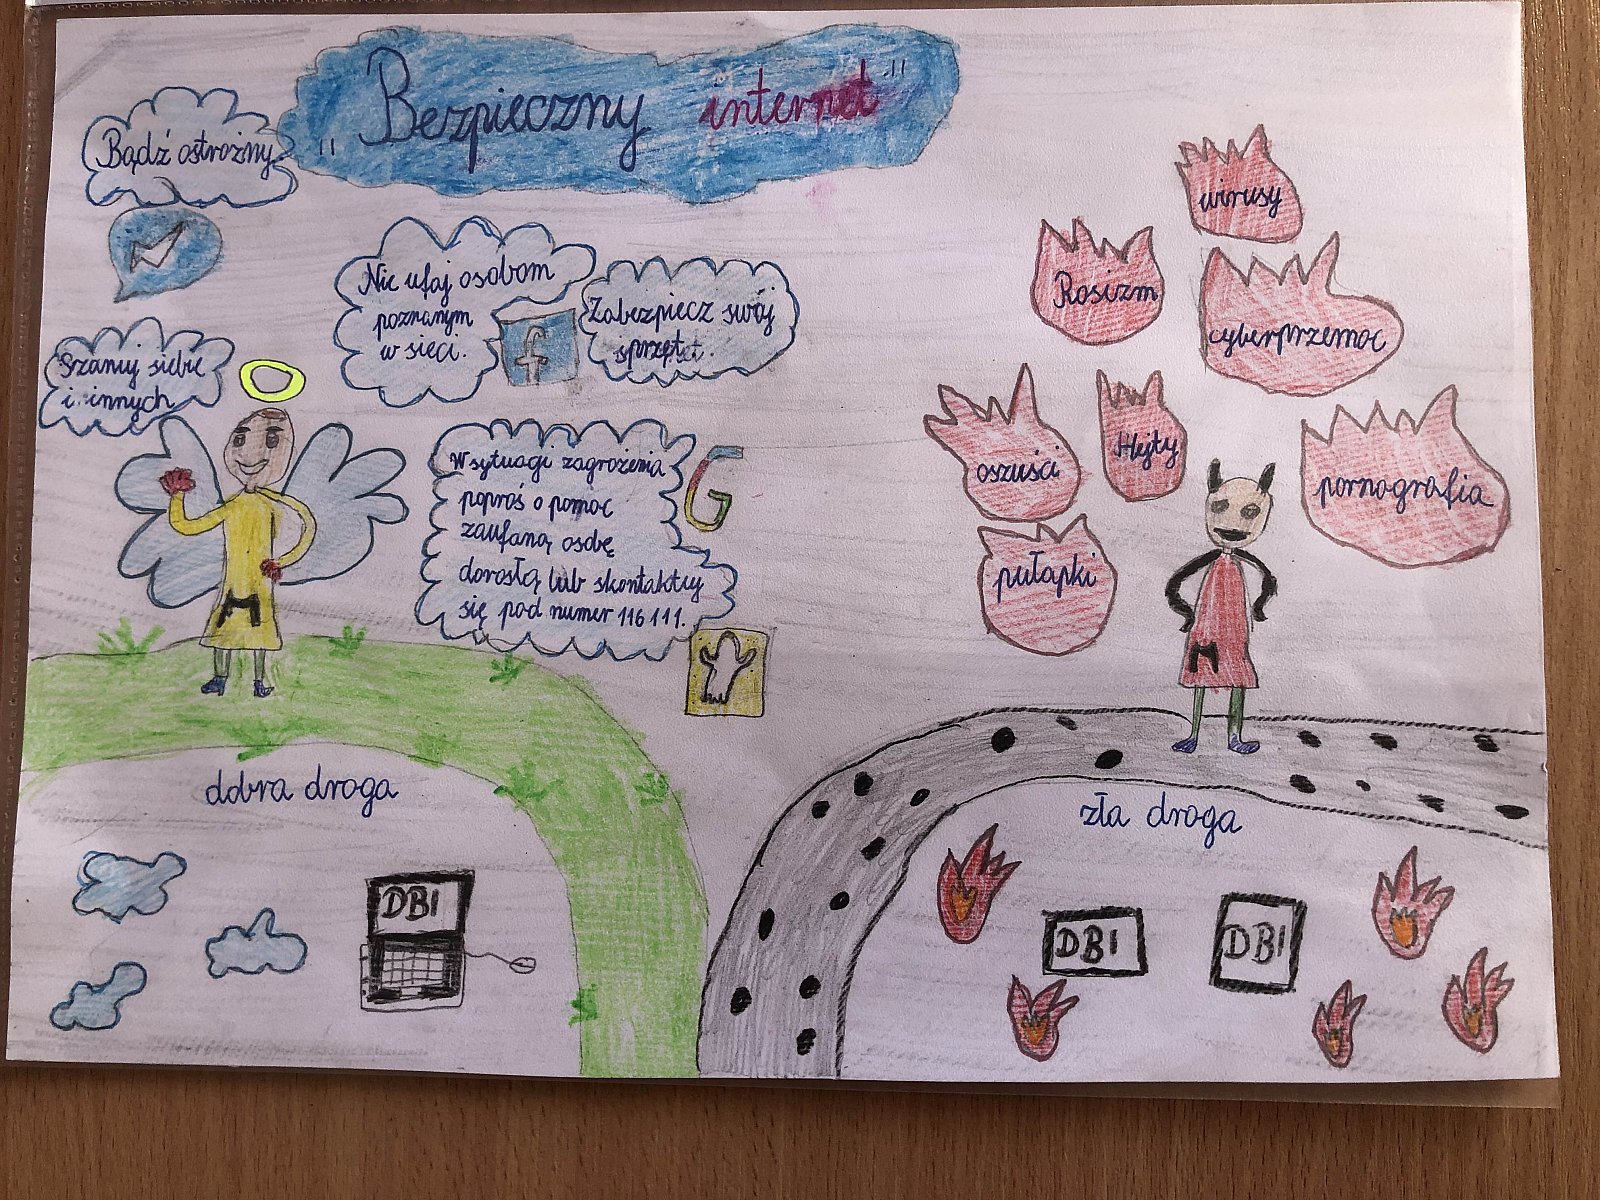 „Bezpieczny internet"
Bądź ostrożny
Szanuj siebie
i innych
Nie ufaj osobom
poznanym
w sieci.
f
Zabezpiecz swój
sprzęt.
W sytuacji zagrożenia
poproś o pomoc
zaufaną osobę
dorosłą lub skontaktuj
się pod numer 116 111.
G
dobra droga
DBI
wirusy
Rasizm
cyberprzemoc
oszuści
Hejty
pornografia
pułapki
zła droga
DBI
DBI